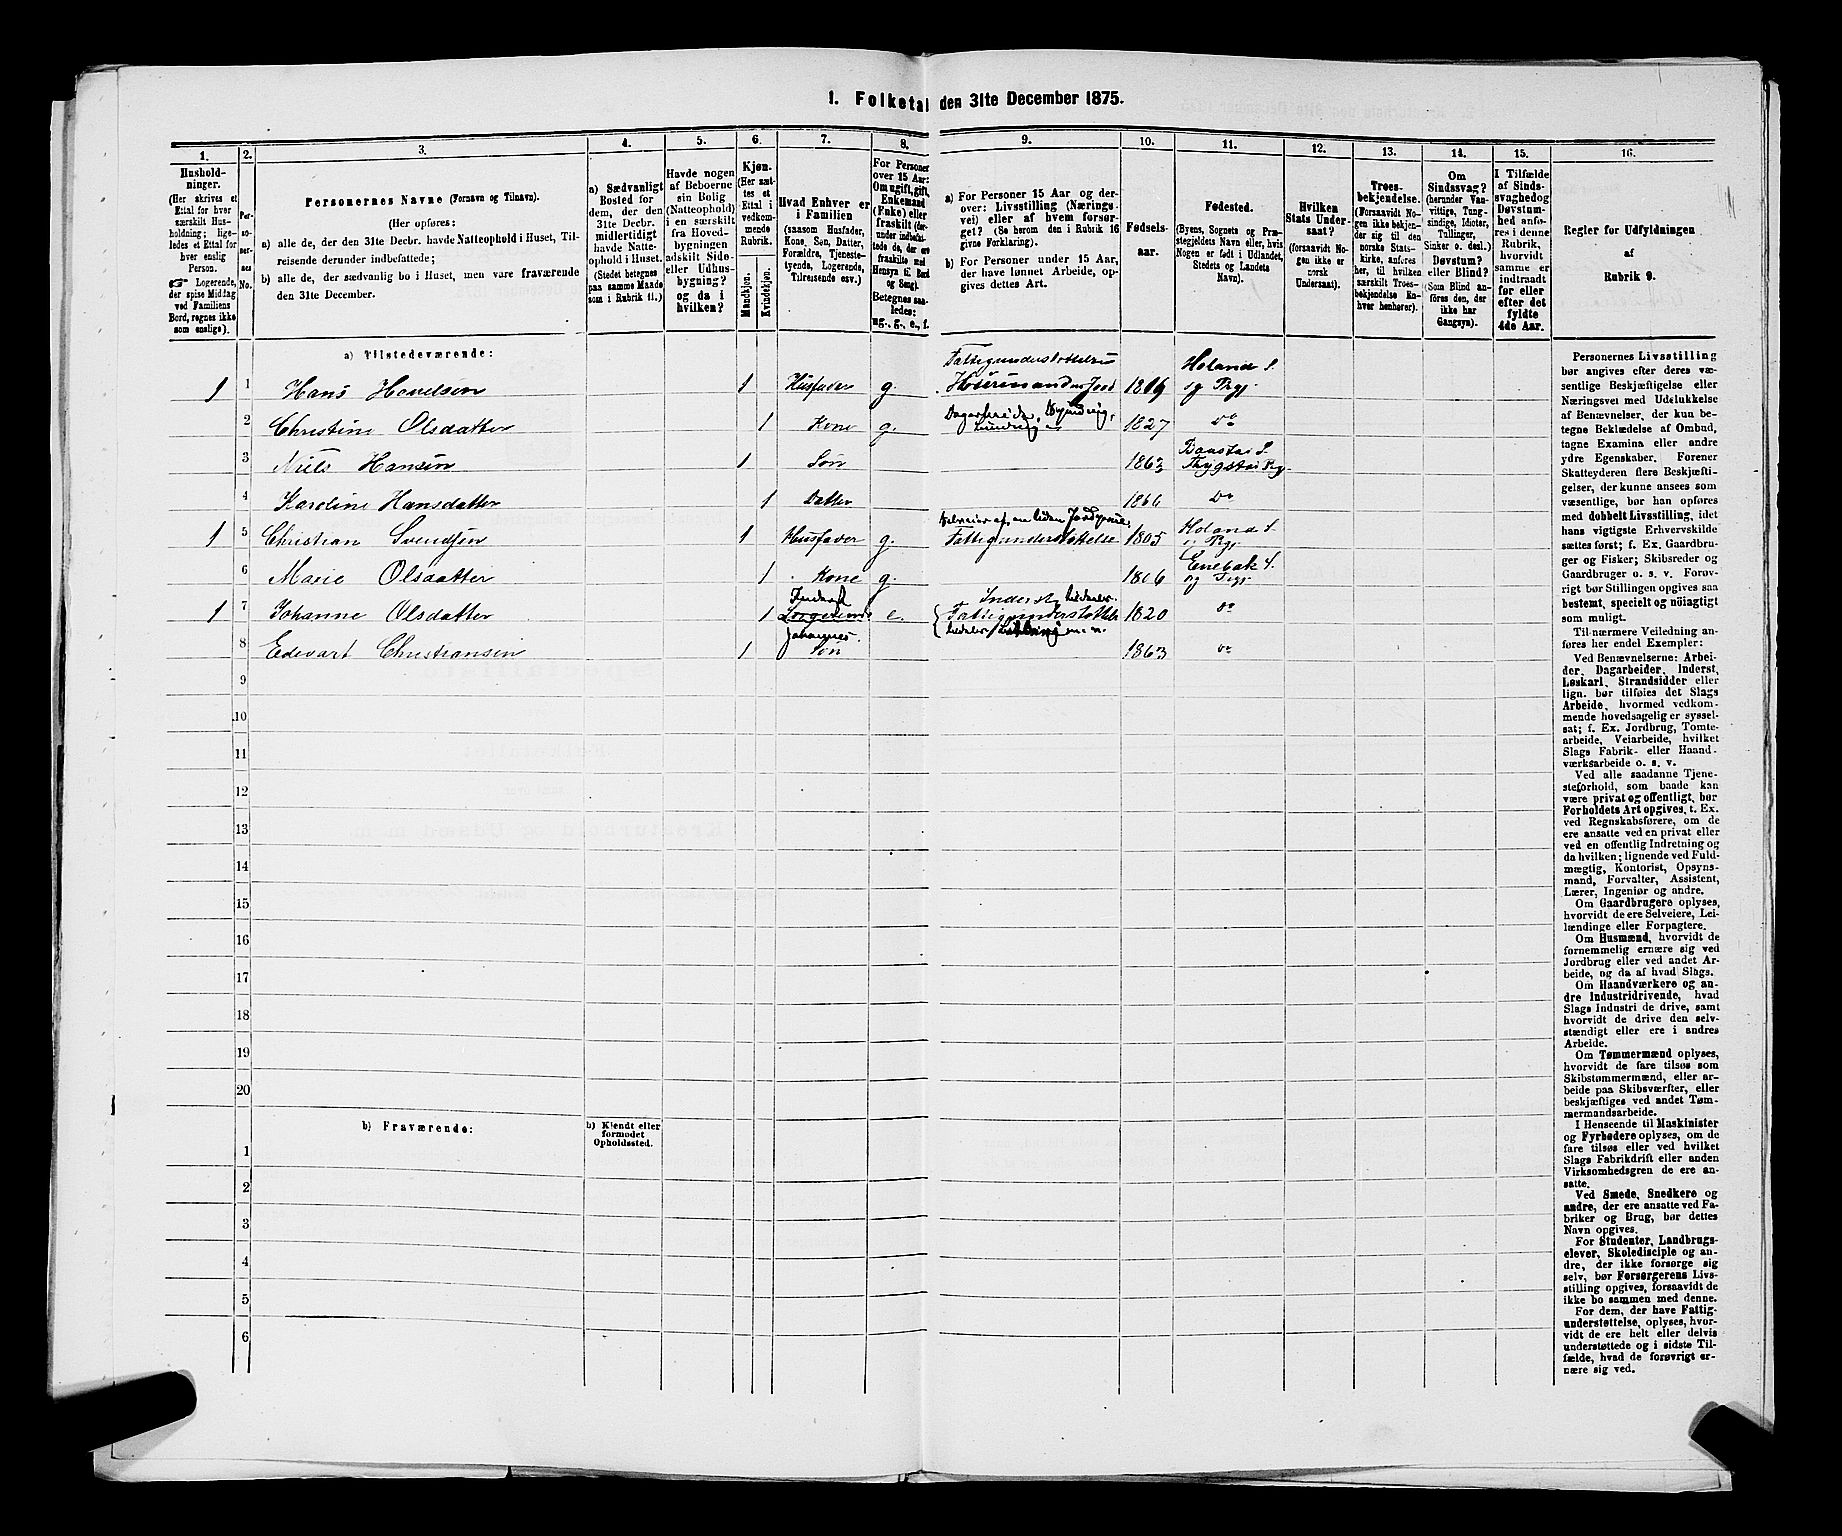 1. Folketal den 31te December 1875.
1.
2.
3.
4.
5.
6.
7.
8.
9.
10.
11.
12.
13.
14.
15.
16.
Hushold-
ninger.
(Her skrives et
Ettal for hver
særskilt Hus-
holdning; lige-
ledes et Ettal for
hver enslig
Person.
☞ Logerende,
der spise Middag
ved Familiens
Bord, regnes ikke
som enslige).
Per-
so-
ner-
nes
No.
Personernes Navne (Fornavn og Tilnavn).
(Her opføres:
a) alle de, der den 31te Decbr. havde Natteophold i Huset, Til-
reisende derunder indbefattede;
b) alle de, der sædvanlig bo i Huset, men vare fraværende
den 31te December.
a) Sædvanligt
Bosted for
dem, der den
31te Decbr.
midlertidigt
havde Natte-
ophold i Huset.
(Stedet betegnes
paa samme Maade
som i Rubrik 11.)
Havde nogen
af Beboerne
sin Bolig
(Natteophold)
i en særskilt
fra Hoved-
bygningen
adskilt Side-
eller Udhus-
bygning?
og da i
hvilken?
Kjøn.
(Her sæt-
tes et
Ettal i
vedkom-
mende
Rubrik.
Mandkjøn.
Kvindekjøn.
Hvad Enhver er
i Familien
(saasom Husfader,
Kone, Søn, Datter,
Forældre, Tjeneste-
tyende, Logerende,
Tilreisende osv.)
For Personer
over 15 Aar:
Om ugift, gift,
Enkemand
(Enke) eller
fraskilt (der-
under indbefat-
tede de, der ere
fraskilte med
Hensyn til Bord
og Seng).
Betegnes saa-
ledes:
ug., g., e., f.
a) For Personer 15 Aar og der-
over: Livsstilling (Nærings-
vei) eller af hvem forsør-
get? (Se herom den i Rubrik 16
givne Forklaring).
b) For Personer under 15 Aar,
der have lønnet Arbeide, op-
gives dettes Art.
Fødsels-
aar.
Fødested.
(Byens, Sognets og Præ-
stegjeldets Navn eller, hvis
Nogen er født i Udlandet,
Stedets og Landets
Navn).
Hvilken
Stats Under-
saat?
(forsaavidt No-
gen ikke er
norsk
Undersaat).
Troes-
bekjendelse.
(Forsaavidt No-
gen ikke bekjen-
der sig til den
norske Stats-
kirke, anføres
her, til hvilken
særskilt Troes-
bekjendelse En-
hver henhører).
Om
Sindssvag?
(herunder Van-
vittige, Tung-
sindige, Idioter,
Tullinger,
Sinker o. desl.)
Døvstum?
eller Blind?
(Som Blind an-
føres den, der
ikke har
Gangsyn).
I Tilfælde
af Sinds-
svaghed og
Døvstum-
hed anfø-
res i denne
Rubrik,
hvorvidt
samme er
indtraadt
før eller
efter det
fyldte
4de Aar.
Regler for Udfyldningen
af
Rubrik 9.
a) Tilstedeværende:
1 1 Hans Hovelsen 1 Husfader g. 1816 Høland S.
og Prgj.
2 Christine Olsdatter 1 Kone g. 1827 do
3 Niels Hansen 1 Søn 1863
4 Karoline Hansdatter 1 Datter 1866 do
Selveier af en liden Jordparcel
1 5 Christian Svendsen 1 Husfader g. Fattigunderstøttelse 1805 Høland S.
Prgj.
6 Marie Olsdatter 1 Kone g. 1806 Enebak S.
og Prgj.
Inderst
1 7 Johanne Olsdatter 1 Logerende e. Fattigunderstøttelse 1820 do
Johannes
8 Edevart Christiansen 1 Søn 1863 do
9
10
11
12
13
14
15
16
17
18
19
20
b) Fraværende:
b) Kjendt eller
formodet
Opholdssted.
1
2
3
4
5
6
Personernes Livsstilling
bør angives efter deres væ-
sentlige Beskjæftigelse eller
Næringsvei med Udelukkelse
af Benævnelser, der kun be-
tegne Beklædelse af Ombud,
tagne Examina eller andre
ydre Egenskaber. Forener
Skatteyderen flere Beskjæfti-
gelser, der kunne ansees som
væsentlige, bør han opføres
med dobbelt Livsstilling, idet
hans vigtigste Erhvervskilde
sættes først; f. Ex. Gaardbru-
ger og Fisker; Skibsreder og
Gaardbruger o. s. v. Forøv-
rigt bør Stillingen opgives saa
bestemt, specielt og nøiagtigt
som muligt.
Til nærmere Veiledning an-
føres her endel Exempler:
Ved Benævnelserne: Arbei-
der, Dagarbeider, Inderst,
Løskarl, Strandsidder eller
lign. bør tilføies det Slags
Arbeide, hvormed vedkom-
mende hovedsagelig er syssel-
sat; f. Ex. Jordbrug, Tomte-
arbeide, Veiarbeide, hvilket
Slags Fabrik- eller Haand-
værksarbeide o. s. v.
Ved alle saadanne Tjene-
steforhold, som baade kan
være privat og offentligt, bør
Forholdets Art opgives, t. Ex.
ved Regnskabsførere, om de
ere ansatte ved en privat eller
ved en offentlig Indretning og
da hvilken; lignende ved Fuld-
mægtig, Kontorist, Opsyns-
mand, Forvalter, Assistent,
Lærer, Ingeniør og andre.
Om Gaardbrugere oplyses,
hvorvidt de ere Selveiere, Lei-
lændinge eller Forpagtere.
Om Husmænd, hvorvidt de
fornemmelig ernære sig ved
Jordbrug eller ved andet Ar-
beide, og da af hvad Slags.
Om Haandværkere og an-
dre Industridrivende, hvad
Slags Industri de drive, samt
hvorvidt de drive den selv-
stændigt eller ere i andres
Arbeide.
Om Tømmermænd oplyses,
hvorvidt de fare tilsøs som
Skibstømmermænd, eller ar-
beide paa Skibsværfter, eller
beskjæftiges ved andet Tøm-
mermandsarbeide.
I Henseende til Maskinister
og Fyrbødere oplyses, om de
fare tilsøs eller ved hvilket
Slags Fabrikdrift eller anden
Virksomhedsgren de ere an-
satte.
Ved Smede, Snedkere og
andre, der ere ansatte ved Fa-
briker og Brug, bør dettes
Navn opgives.
For Studenter, Landbrugs-
elever, Skoledisciple og an-
dre, der ikke forsørge sig
selv, bør Forsørgerens Livs-
stilling opgives, forsaavidt de
ikke bo sammen med denne.
For dem, der have Fattig-
understøttelse, oplyses, hvor-
vidt de ere helt eller delvis
understøttede og i sidste Til-
fælde, hvad de forøvrigt er-
nære sig ved.